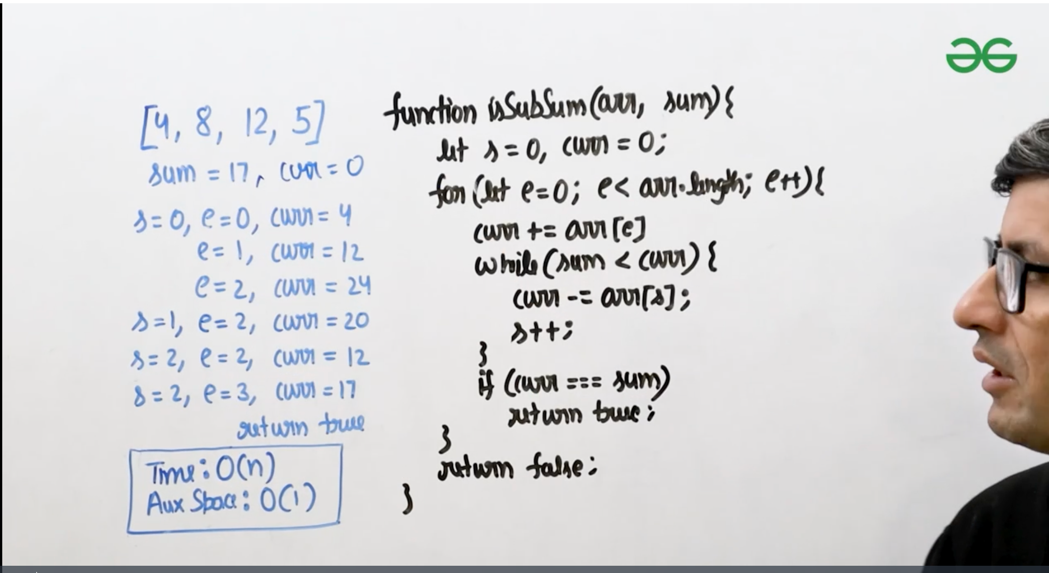 [4, 8, 12, 5]
sum = 17, curr = 0
s=0, e=0, curr = 4
e=1, curr = 12
e=2, curr = 24
s=1, e=2, curr = 20
s=2, e=2, curr = 12
s=2, e=3, curr = 17
return true
Time: O(n)
Aux Space: O(1)
function isSubSum(arr, sum){
let s=0, curr=0;
for(let e=0; e< arr.length; e++){
curr += arr[e]
while(sum < curr){
curr -= arr[s];
s++;
}
if (curr === sum)
return true;
}
return false;
}